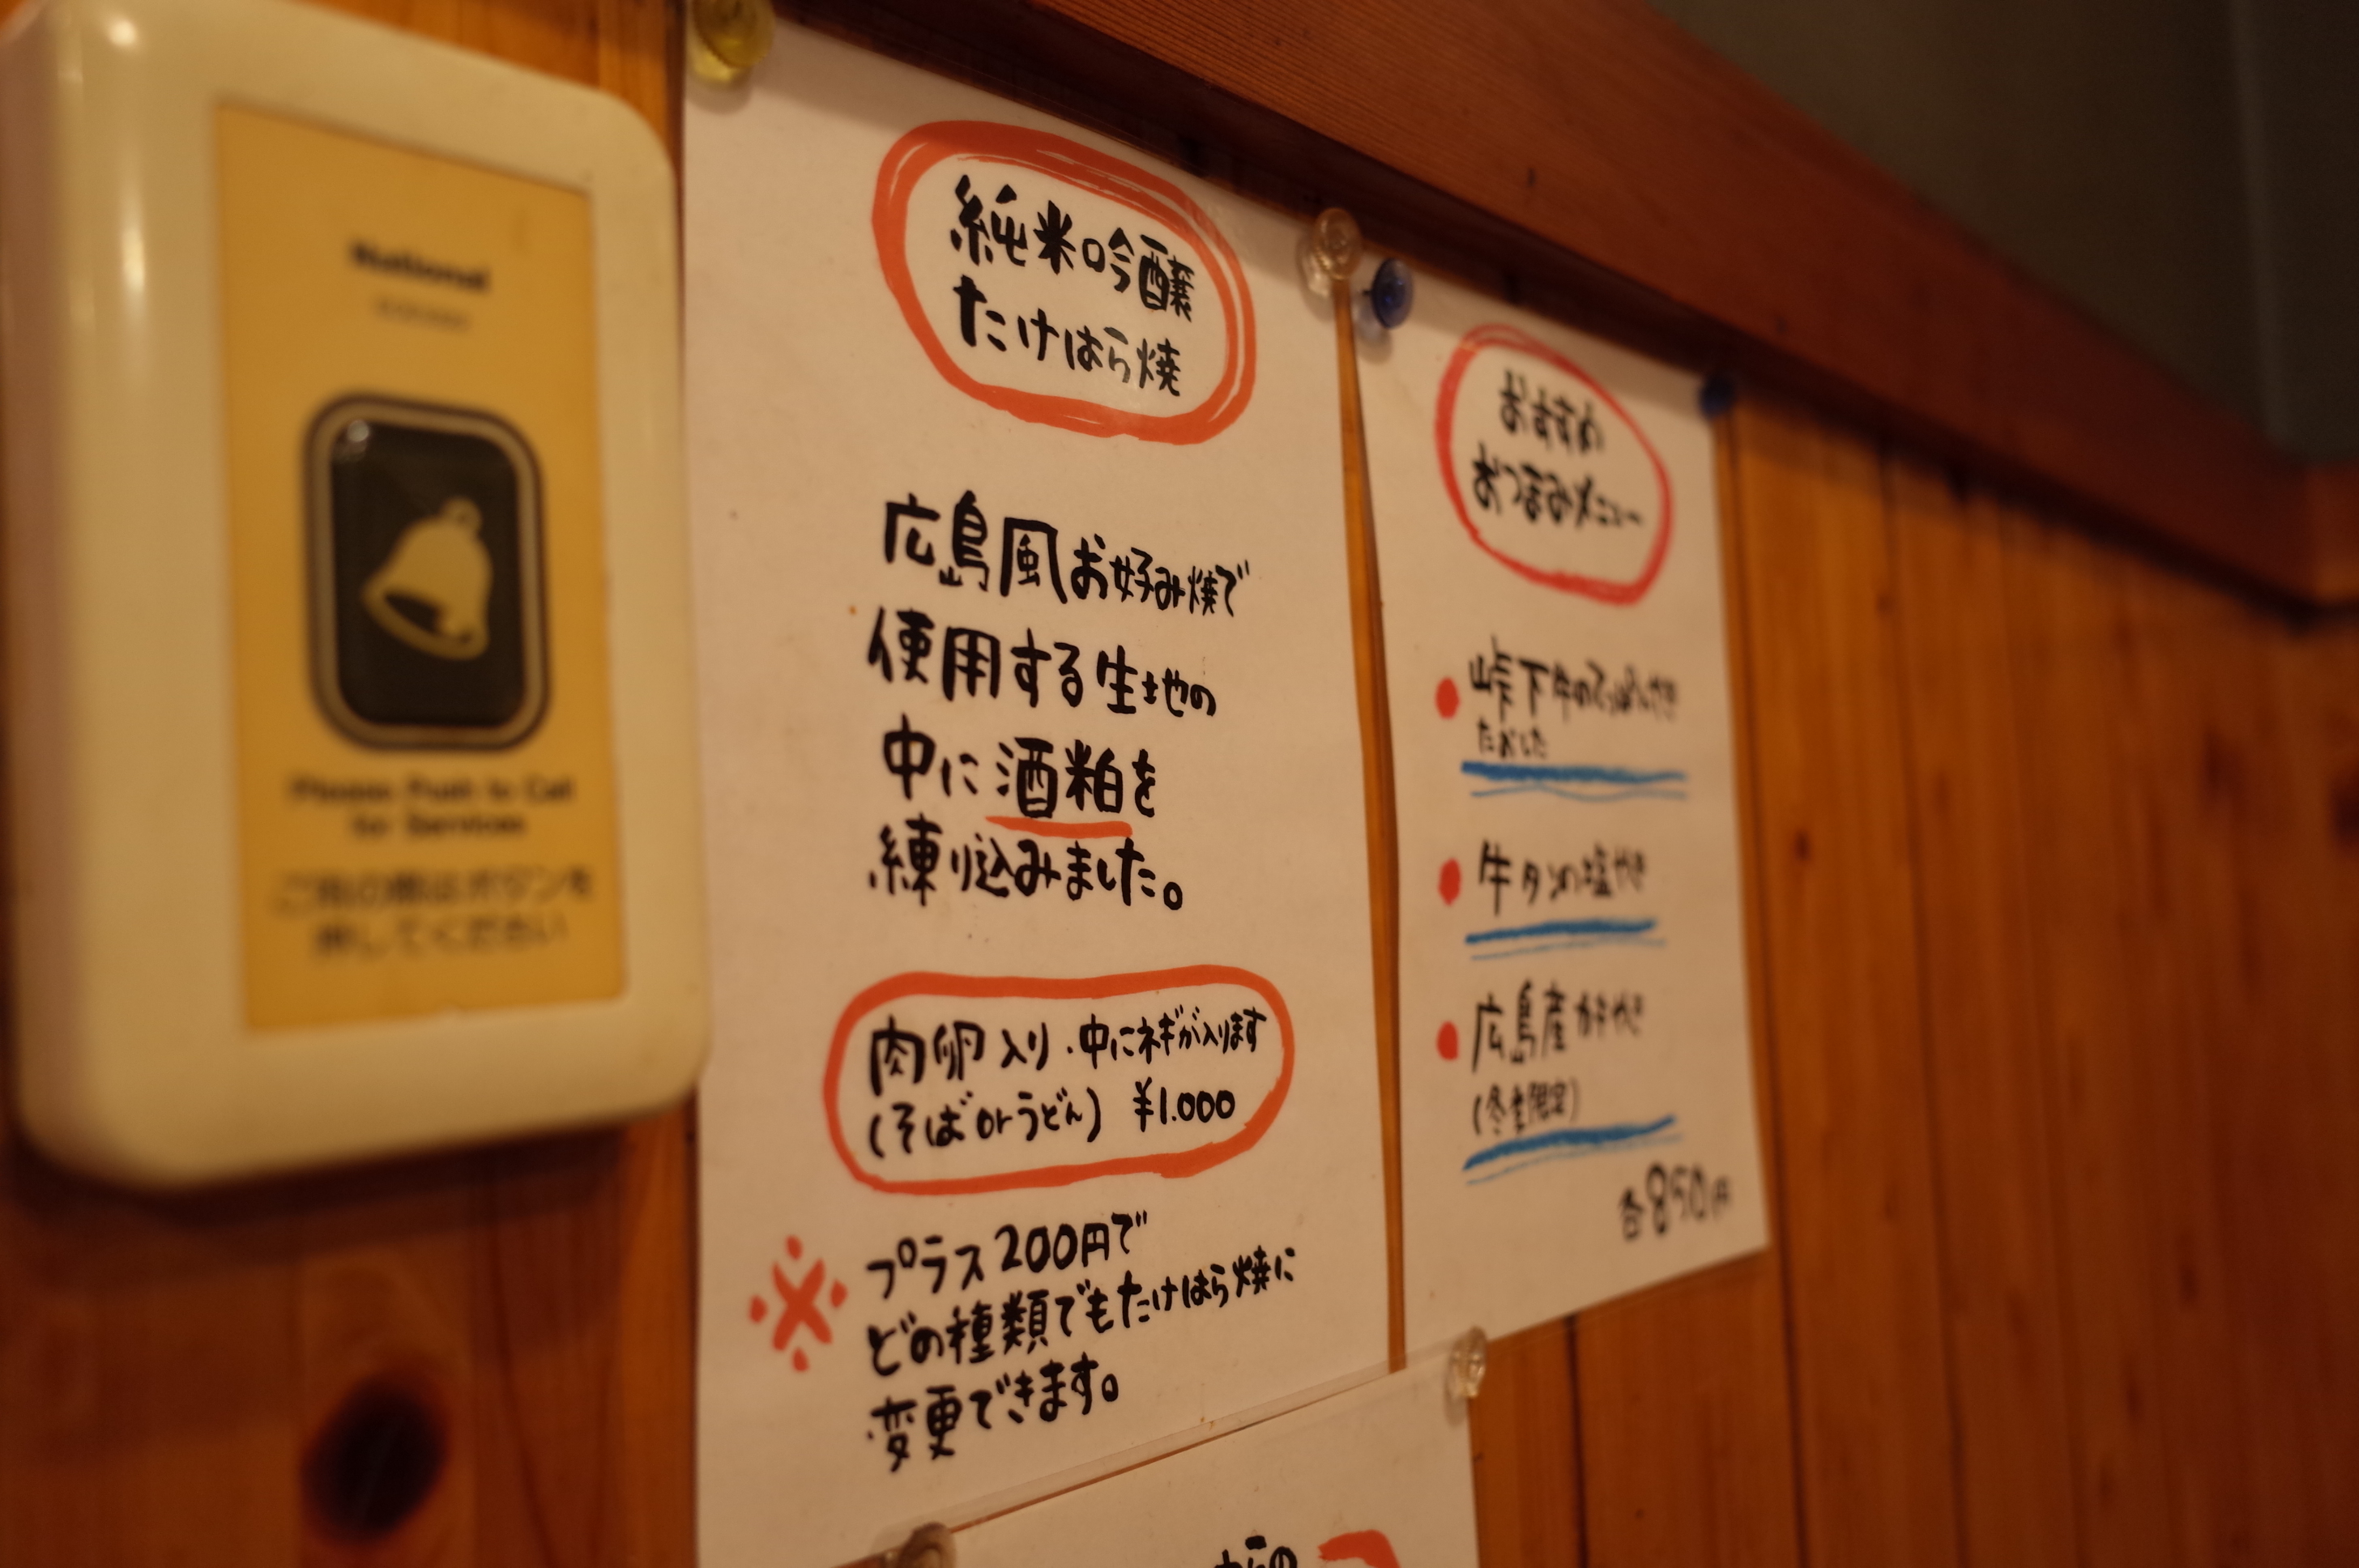 National
Please Push to Call
for Services
ご用の際はボタンを
押してください
純米吟醸
たけはら焼
広島風お好み焼で
使用する生地の
中に酒粕を
練り込みました。
肉卵入り・中にネギが入ります
(そばorうどん) ¥1.000
※プラス200円で
どの種類でもたけはら焼に
変更できます。
おすすめ
おつまみメニュー
峠下牛のてっぱんやき
たおした
牛タンの塩やき
広島産かきやき
(冬季限定)
各850円